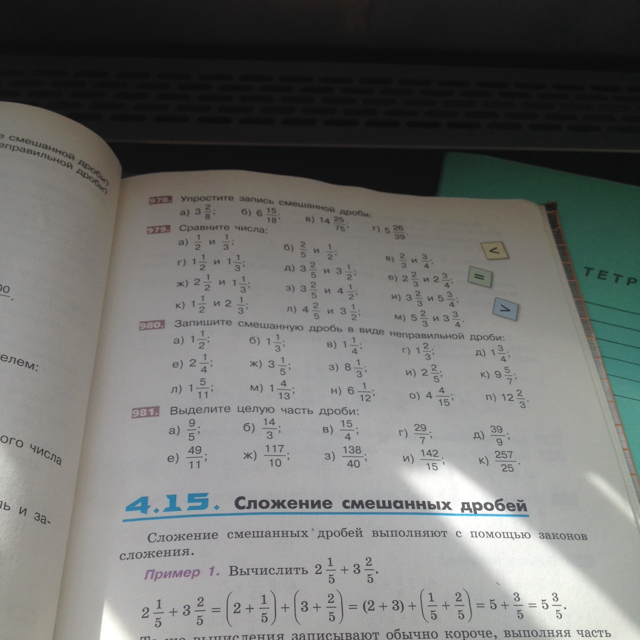 е смешанной дроби?
неправильной дроби?
елем:
ого числа
ль и за-
978. Упростите запись смешанной дроби:
а) 3 2/8; б) 6 15/18; в) 14 25/75; г) 5 26/39
979. Сравните числа:
а) 1/2 и 1/3; б) 2/5 и 1/2; в) 2/3 и 3/4;
г) 1 1/2 и 1 1/3; д) 3 2/5 и 3 1/2; е) 2 2/3 и 2 3/4;
ж) 2 1/2 и 1 1/3; з) 3 2/5 и 4 1/2; и) 3 2/3 и 5 3/4;
к) 1 1/2 и 2 1/3; л) 4 2/5 и 3 1/2; м) 5 2/3 и 3 3/4.
<
=
>
980. Запишите смешанную дробь в виде неправильной дроби:
а) 1 1/2; б) 1 1/3; в) 1 1/4; г) 1 2/3; д) 1 3/4;
е) 2 1/4; ж) 3 1/5; з) 8 1/3; и) 2 2/5; к) 9 5/7;
л) 1 5/11; м) 1 4/13; н) 6 1/12; о) 4 4/15; п) 12 2/3.
981. Выделите целую часть дроби:
а) 9/5; б) 14/3; в) 15/4; г) 29/7; д) 39/9;
е) 49/11; ж) 117/10; з) 138/40; и) 142/15; к) 257/25.
4.15. Сложение смешанных дробей
Сложение смешанных дробей выполняют с помощью законов
сложения.
Пример 1. Вычислить 2 1/5 + 3 2/5.
2 1/5 + 3 2/5 = (2 + 1/5) + (3 + 2/5) = (2 + 3) + (1/5 + 2/5) = 5 + 3/5 = 5 3/5.
вычисления записывают обычно короче, выполняя часть
ТЕТР